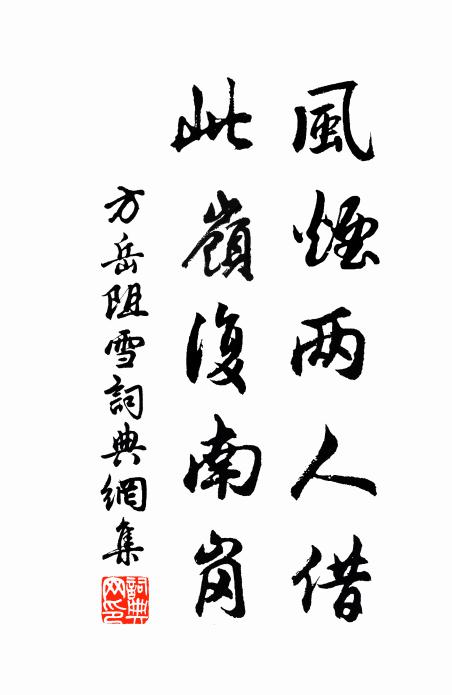 風煙两人借
此嶺復南岗
方岳阻雪詞典網集
詞典网印